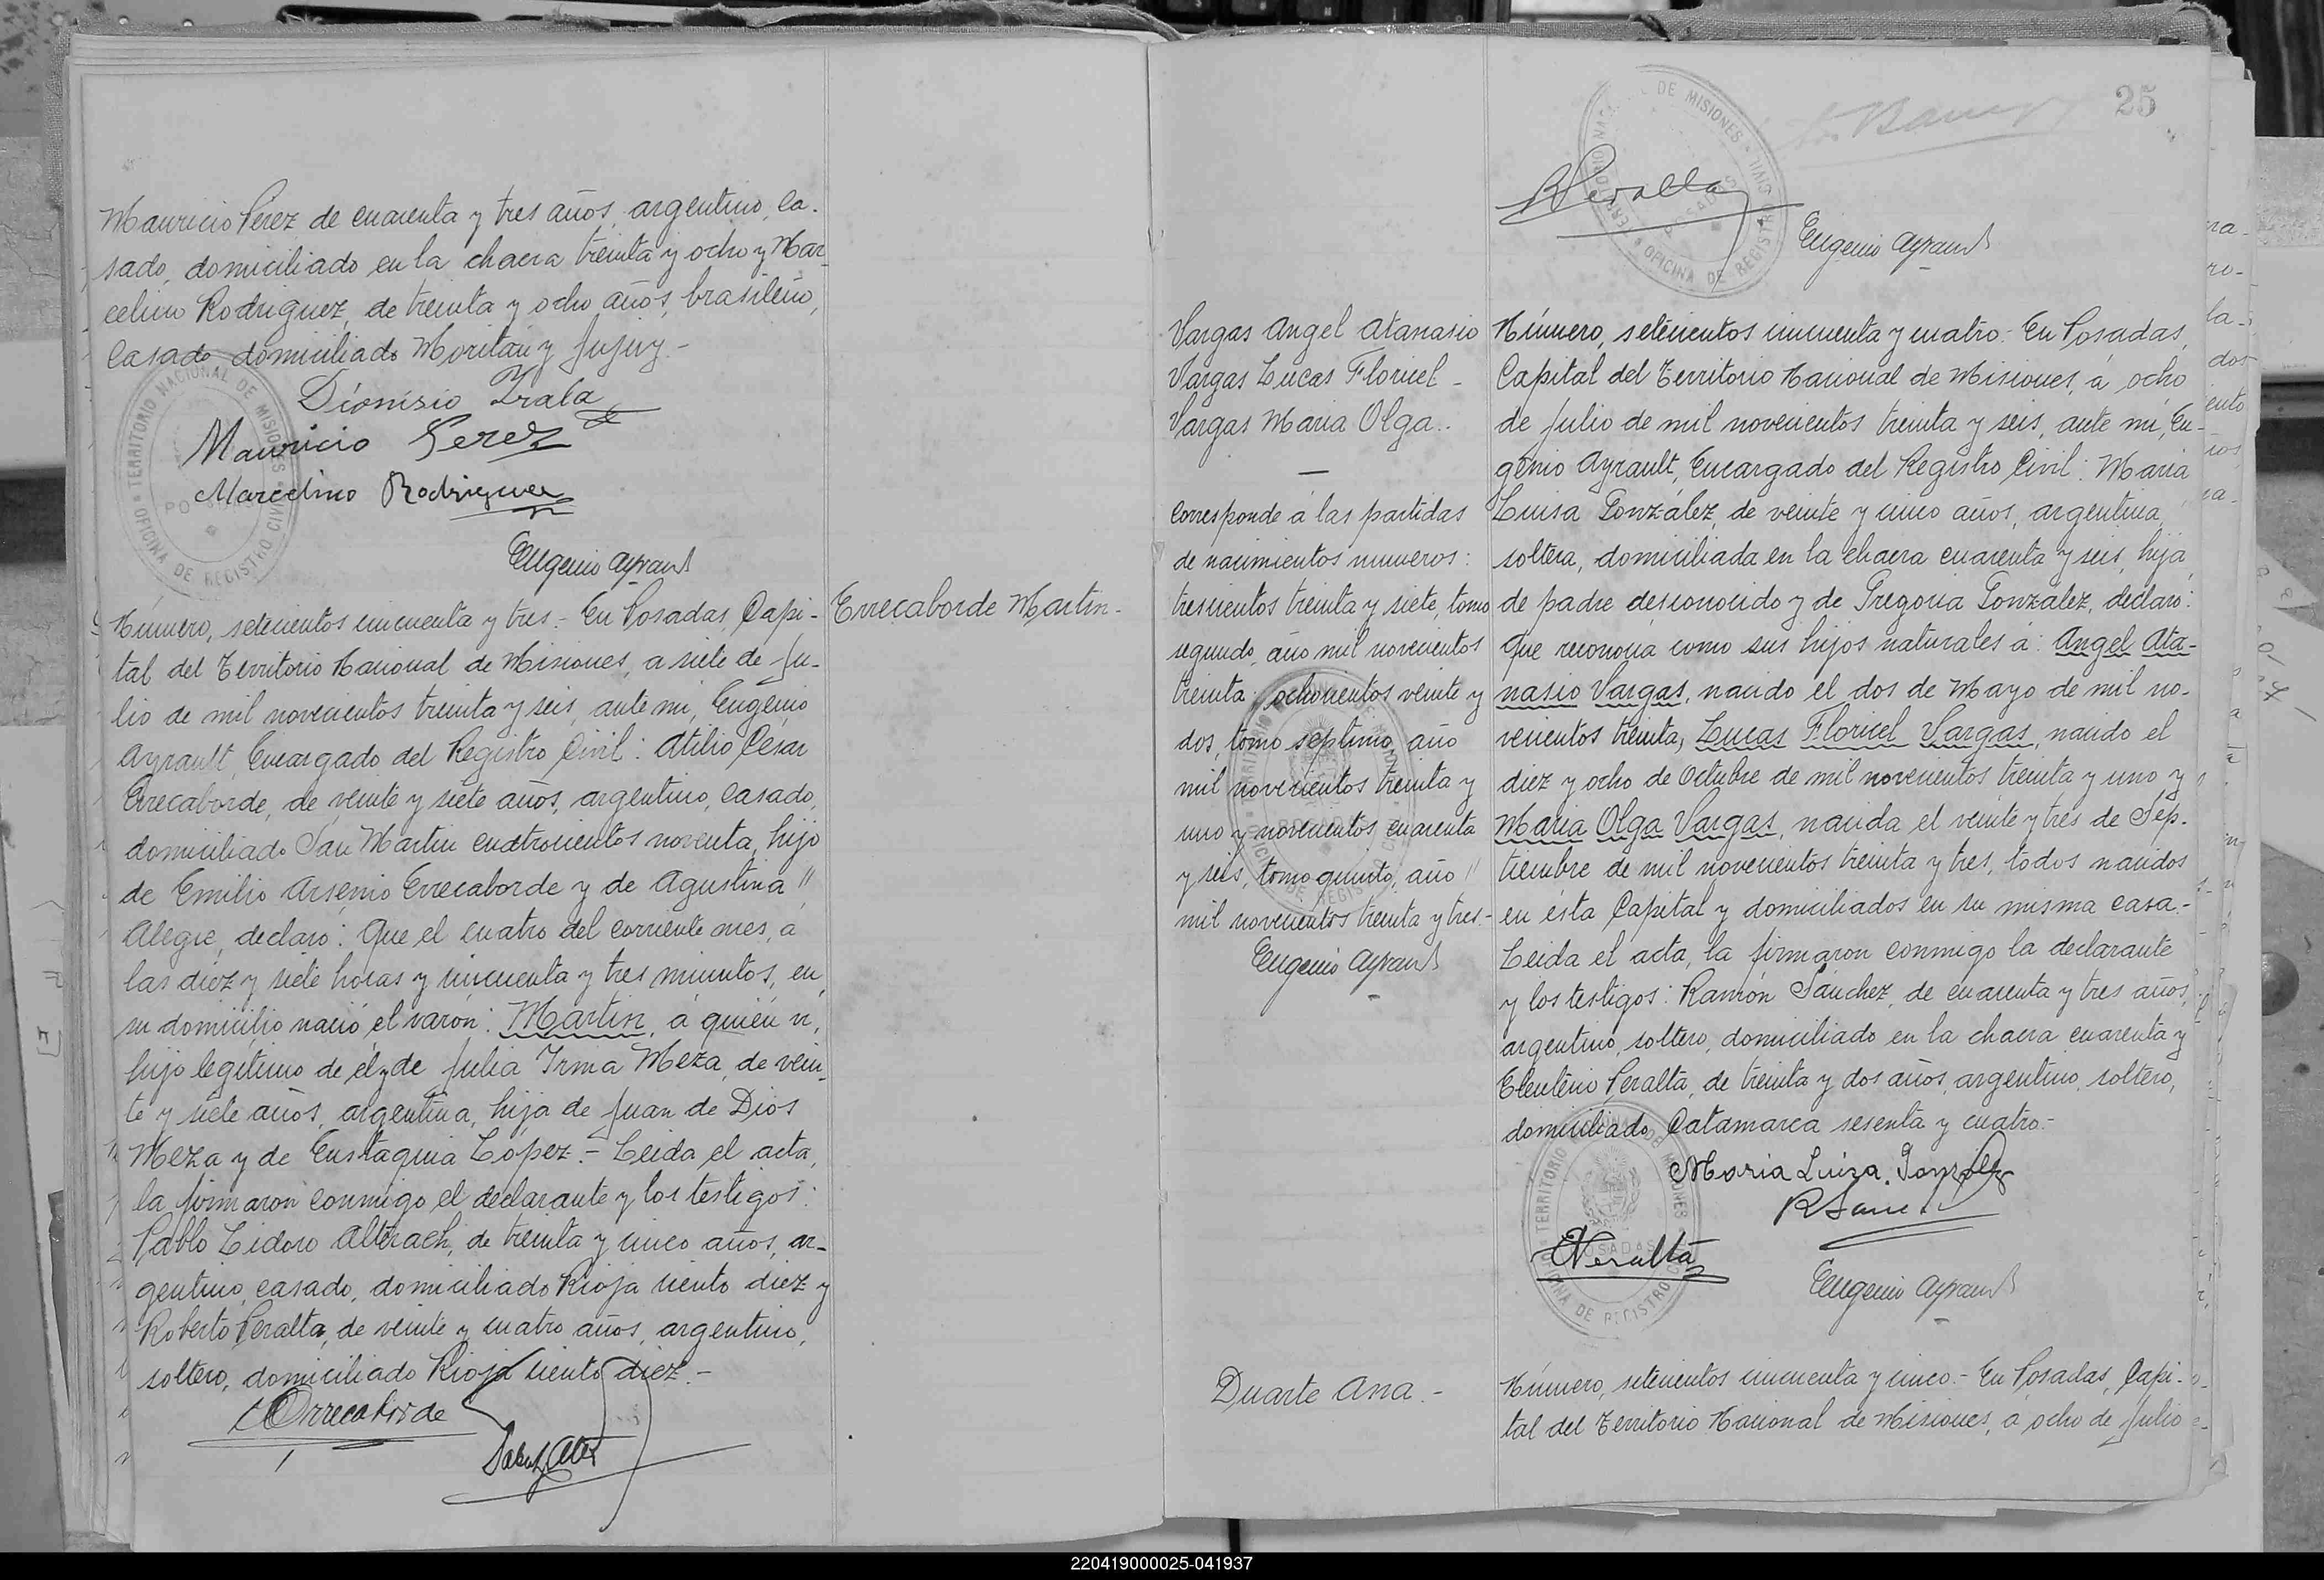 Mauricio Perez de cuarenta y tres años, argentino, ca-
sado, domiciliado en la chacra treinta y ocho y Mar-
celino Rodriguez, de treinta y ocho años, brasileño,
casado domiciliado Moritán y Jujuy.-
Dionisio Irala
Mauricio Perez
Marcelino Rodriguez
Eugenio Ayrault
TERRITORIO NACIONAL DE MISIONES
OFICINA DE REGISTRO CIVIL
Número, setecientos cincuenta y tres.- En Posadas, Capi-
tal del Territorio Nacional de Misiones, a siete de Ju-
lio de mil novecientos treinta y seis, ante mi, Eugenio
Ayrault, Encargado del Registro Civil: Atilio César
Errecaborde, de veinte y siete años, argentino, casado,
domiciliado San Martin cuatrocientos noventa, hijo
de Emilio Arsenio Errecaborde y de Agustina "
Alegre, declaró: Que el cuatro del corriente mes, a
las diez y siete horas y cincuenta y tres minutos, en
su domicilio nació el varón: Martin, á quién vi,
hijo legitimo de él y de Julia Irma Meza, de vein-
te y siete años, argentina, hija de Juan de Dios
Meza y de Eustaquia López.- Leida el acta,
la firmaron conmigo el declarante y los testigos:
Pablo Lidoro Alterach, de treinta y cinco años, ar-
gentino, casado, domiciliado Rioja ciento diez y
Roberto Peralta, de veinte y cuatro años, argentino,
soltero, domiciliado Rioja ciento diez.-
Errecaborde
Errecaborde Martin-
25
TERRITORIO NACIONAL DE MISIONES
OFICINA DE REGISTRO CIVIL
POSADAS
RPeralta
Eugenio Ayrault
Vargas Angel Atanasio
Vargas Lucas Floricel -
Vargas Maria Olga.-
Corresponde á las partidas
de nacimientos numeros:
trescientos treinta y siete, tomo
segundo, año mil novecientos
treinta; ochocientos veinte y
dos, tomo séptimo, año
mil novecientos treinta y
uno y novecientos cuarenta
y seis, tomo quinto, año "
mil novecientos treinta y tres-
Eugenio Ayrault
Número, setecientos cincuenta y cuatro.- En Posadas,
Capital del Territorio Nacional de Misiones, á ocho
de Julio de mil novecientos treinta y seis, ante mi, Eu-
genio Ayrault, Encargado del Registro Civil: Maria
Luisa González, de veinte y cinco años, argentina,
soltera, domiciliada en la chacra cuarenta y seis, hija
de padre desconocido y de Gregoria González, declaró:
Que reconocia como sus hijos naturales á: Angel Ata-
nasio Vargas, nacido el dos de Mayo de mil no-
vecientos treinta, Lucas Floricel Vargas, nacido el
diez y ocho de Octubre de mil novecientos treinta y uno y
Maria Olga Vargas, nacida el veinte y tres de Sep-
tiembre de mil novecientos treinta y tres, todos nacidos
en ésta Capital y domiciliados en su misma casa.-
Leida el acta, la firmaron conmigo la declarante
y los testigos: Ramón Sánchez, de cuarenta y tres años,
argentino, soltero, domiciliado en la chacra cuarenta y
Eleuterio Peralta, de treinta y dos años, argentino, soltero,
domiciliado Catamarca sesenta y cuatro.-
Maria Luiza Gonzalez
EPeralta
Eugenio Ayrault
Duarte Ana.-
Número, setecientos cincuenta y cinco.- En Posadas, Capi-
tal del Territorio Nacional de Misiones, a ocho de Julio
220419000025-041937